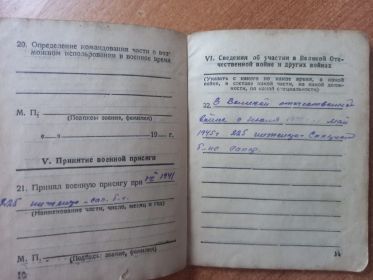 20. Определение командования части о воз-
можном использовании в военное время
М. П.
(Подпись звания, фамилия)
" " 19 г.
V. Принятие военной присяги
21. Принял военную присягу при VII 1941
225 инженер.-сап. б-н.
(Наименование части, число, месяц и год)
М. П. (Подпись, звание, фамилия)
10
VI. Сведения об участии в Великой Оте-
чественной войне и других войнах
(Указать с какого по какое время, в какой
войне, в составе какой части, на какой должно-
сти, по какой специальности)
22. В Великой отечественной
войне с июля май
1945г. 225 инженерно-
б-не сапер.